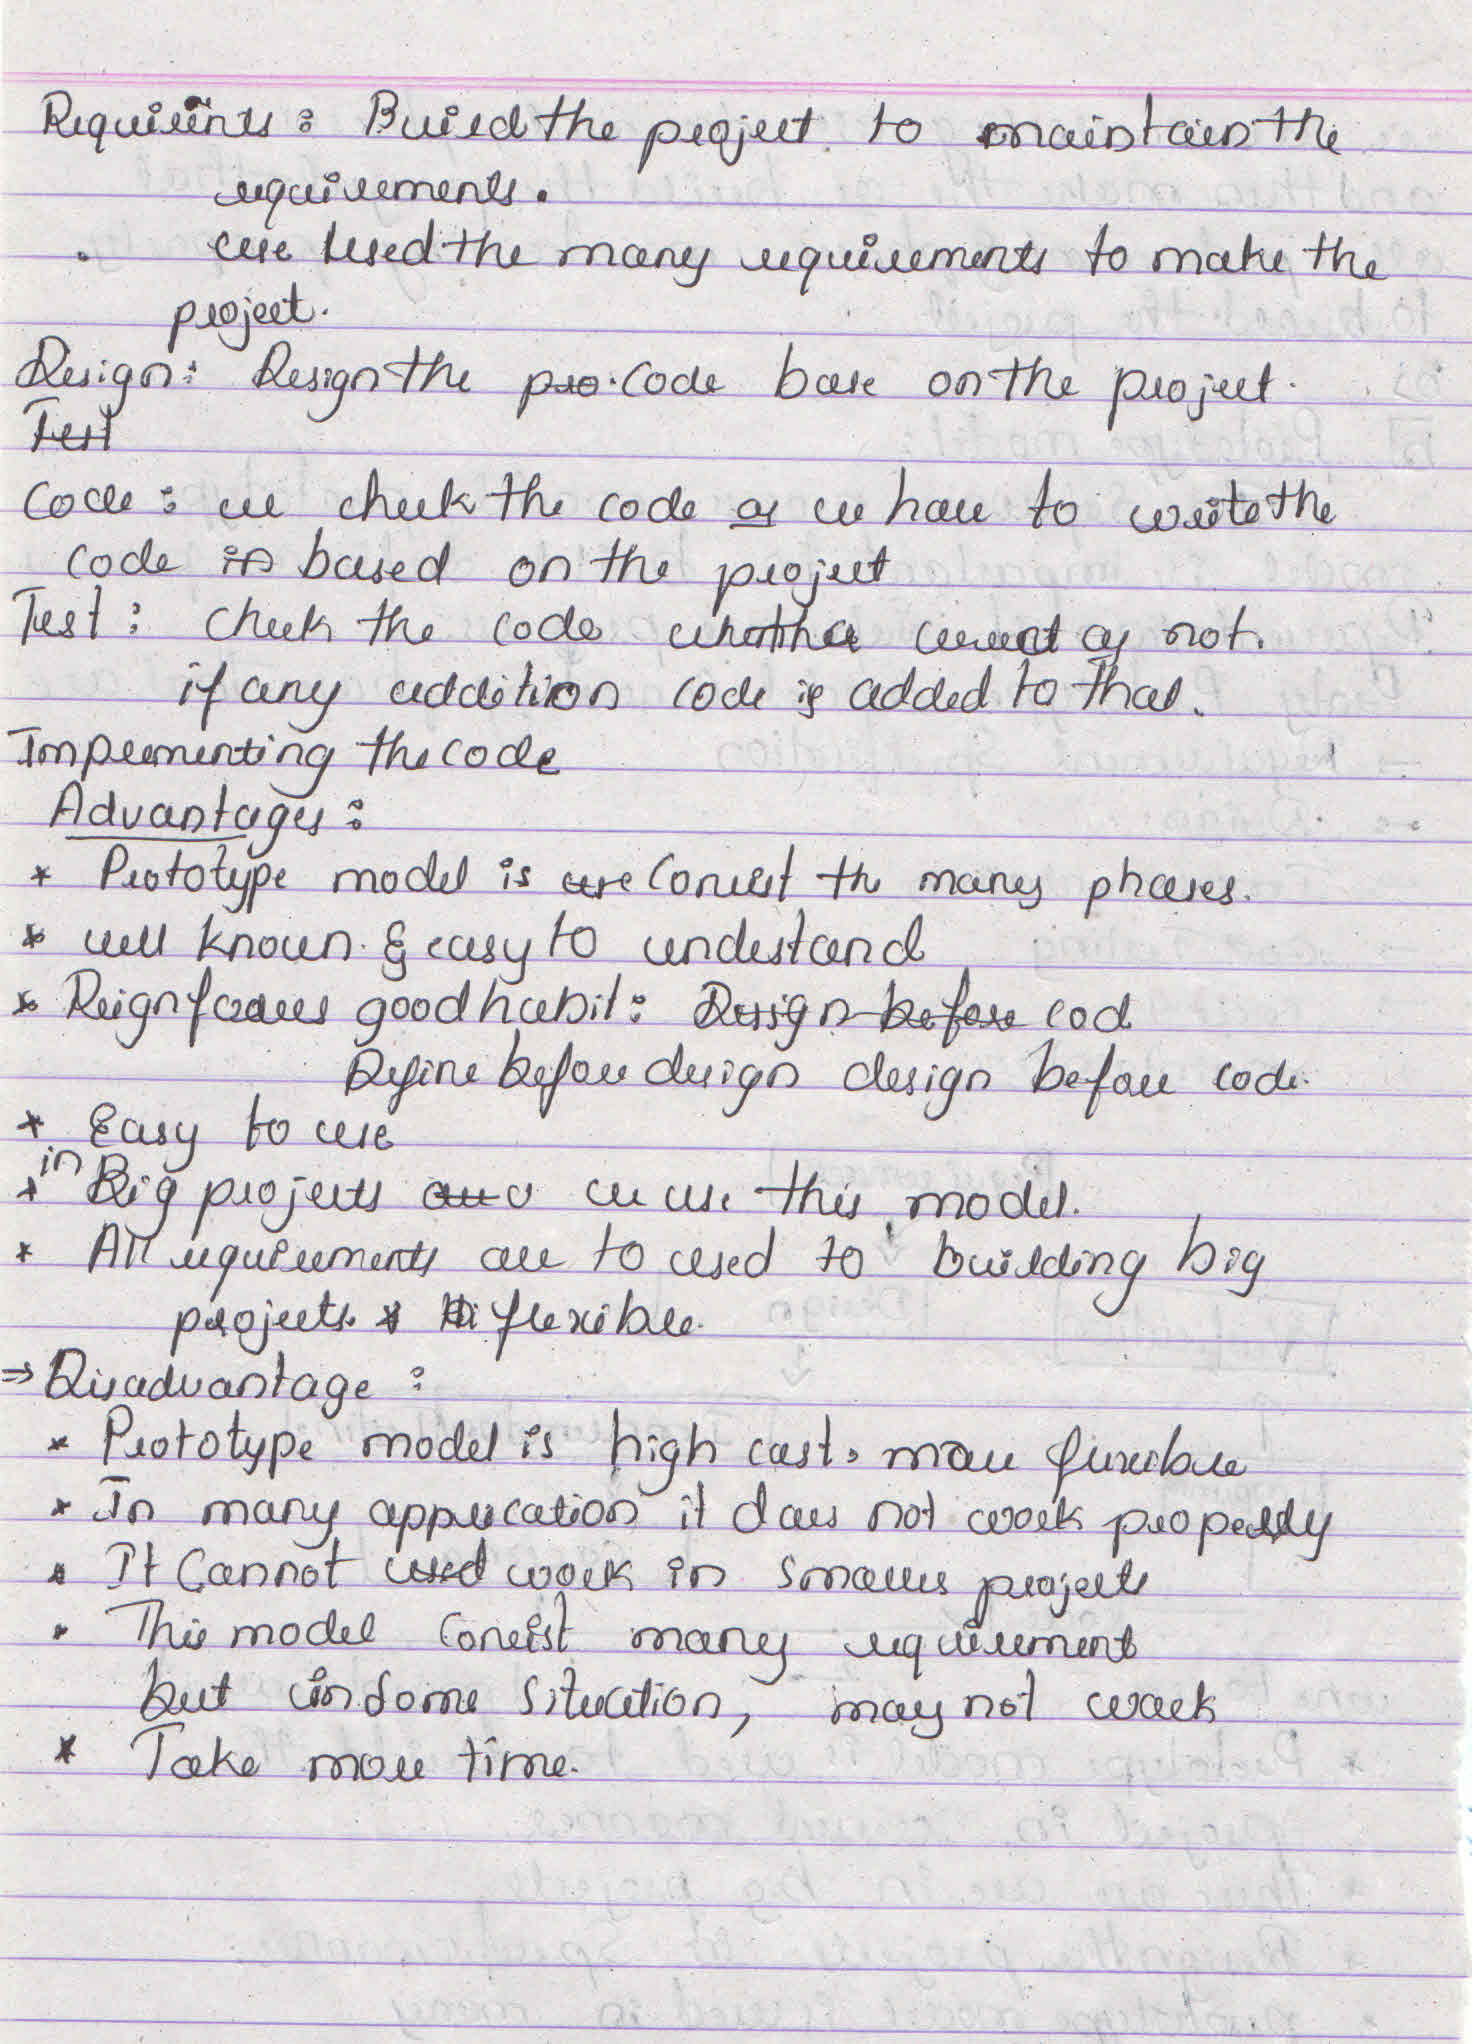 Requirints : Build the project to maintain the
requirements.
. use used the many requirements to make the
project.
Design : Design the pro. code base on the project.
Test
Code : we check the code as we have to write the
code in based on the project
Test : check the code whether correct or not.
if any addition code is added to that.
Implementing the code
Advantages :
* Prototype model is are consist the many phases.
* well known & easy to understand
* Reignforces good habit : Design before cod
Define before design design before code.
* Easy to use
* in Big projects we use this model.
* All requirements are to used to building big
projects. * flexible.
⇒ Disadvantage :
* Prototype model is high cast. more flexible
* In many application it does not work properly
* It cannot used work in smaller projects
* This model consist many requirement
but in some situation, may not work
* Take more time.